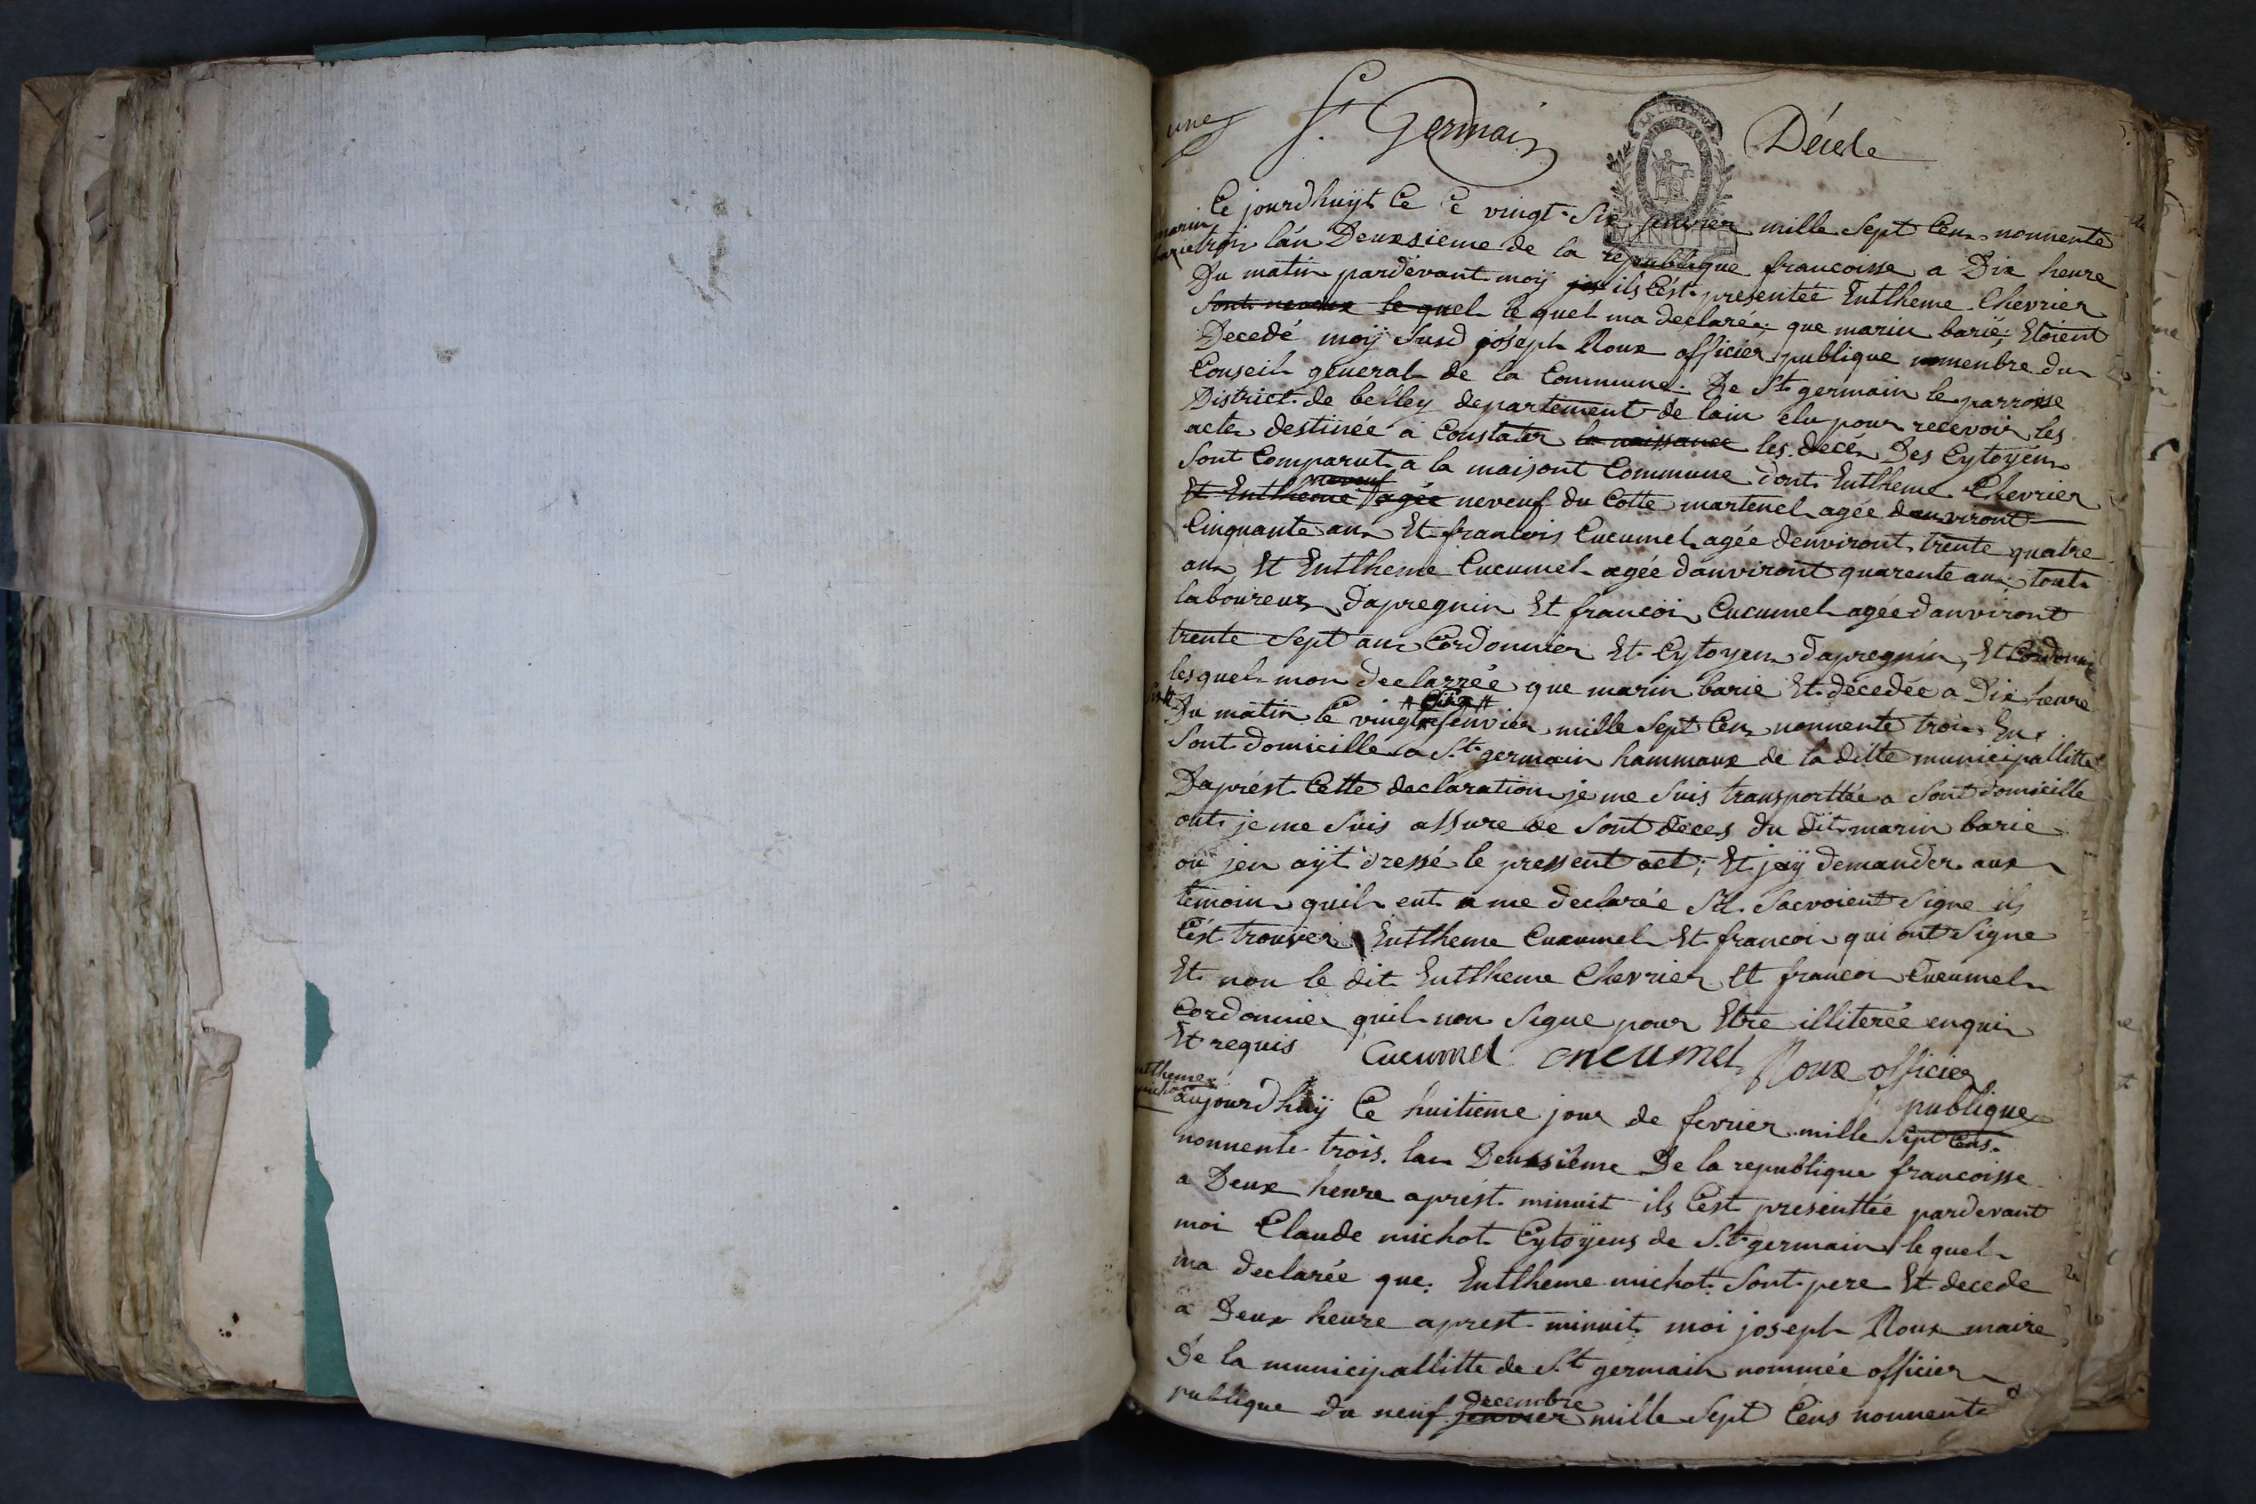 une
St. Germain
Décéde
marin
barie
Ce jourdhuÿt Ce Ce vingt Six jenvier mille Sept Cen nonnente
trois lán Deuxsieme de la republique francoisse a Dix heure
Du matin pardevant moÿ ils Cést presentée Enttheme Chevrier
Sont neveux le quel le quel ma declarée que marin barie Etoient
Decedé moÿ Susd joséph Roux officier publique menbre du
Conseil general de la Commune De St. germain le parroisse
District de belley departement de lain elu pour recevoir les
acte destinée a Constater la naissance les decé Des Cytoÿen
Sont Comparut a la maisont Commune dont Enttheme Chevrier
neveuf
Et Enttheme agée neveuf du Cotte marternel agée danviront
Cinquante an Et francois Cucumel agée denviront trente quatre
an Et Enttheme Cucumel agée danviront quarente an tout
laboureur Dapregnin Et francoi Cucumel agée danviront
trente Sept an Cordonnier Et Cytoyen Dapregnin, Et Cordonnier
lesquel mon declarrée que marin barie Et décedée a Dix heure
Du matin le vingt jenvier mille Sept Cen nonnente trois En
Sont domicille a St. germain hammaux de la ditte municipallitte
Daprést Cette declaration je me Suis transporttée a Sont domicille
out je me Suis assure de Sont deces du dit marin barie
ou jen aÿt dressé le pressent act; Et jaÿ demander aux
temoin quil ent a me declarée Sil Sacvoient Signe ils
Cést trouver Enttheme Cucumel Et francoi qui ont Signe
Et non le dit Enttheme Chevrier Et francoi Cucumel
Cordonnier quil non Signe pour Etre illiterée enqui
Et requis Cucumel Cucumel Roux officier
publique
Enttheme
michot
aujourdhuÿ Ce huitieme jour de fevrier mille Sept Cens
nonnente trois. lan Deuxsieme De la republique francoisse
a Deux heure aprést minuit ils Cést presenttée pardevant
moi Claude michot Cytoÿens de St. germain lequel
ma declarée que Enttheme michot Sont pere Et decede
a Deux heure aprest minuit moi joseph Roux maire
De la municipallitte de St. germain nommée officier
decembre
publique du neuf jenvier mille Sept Cens nonnente